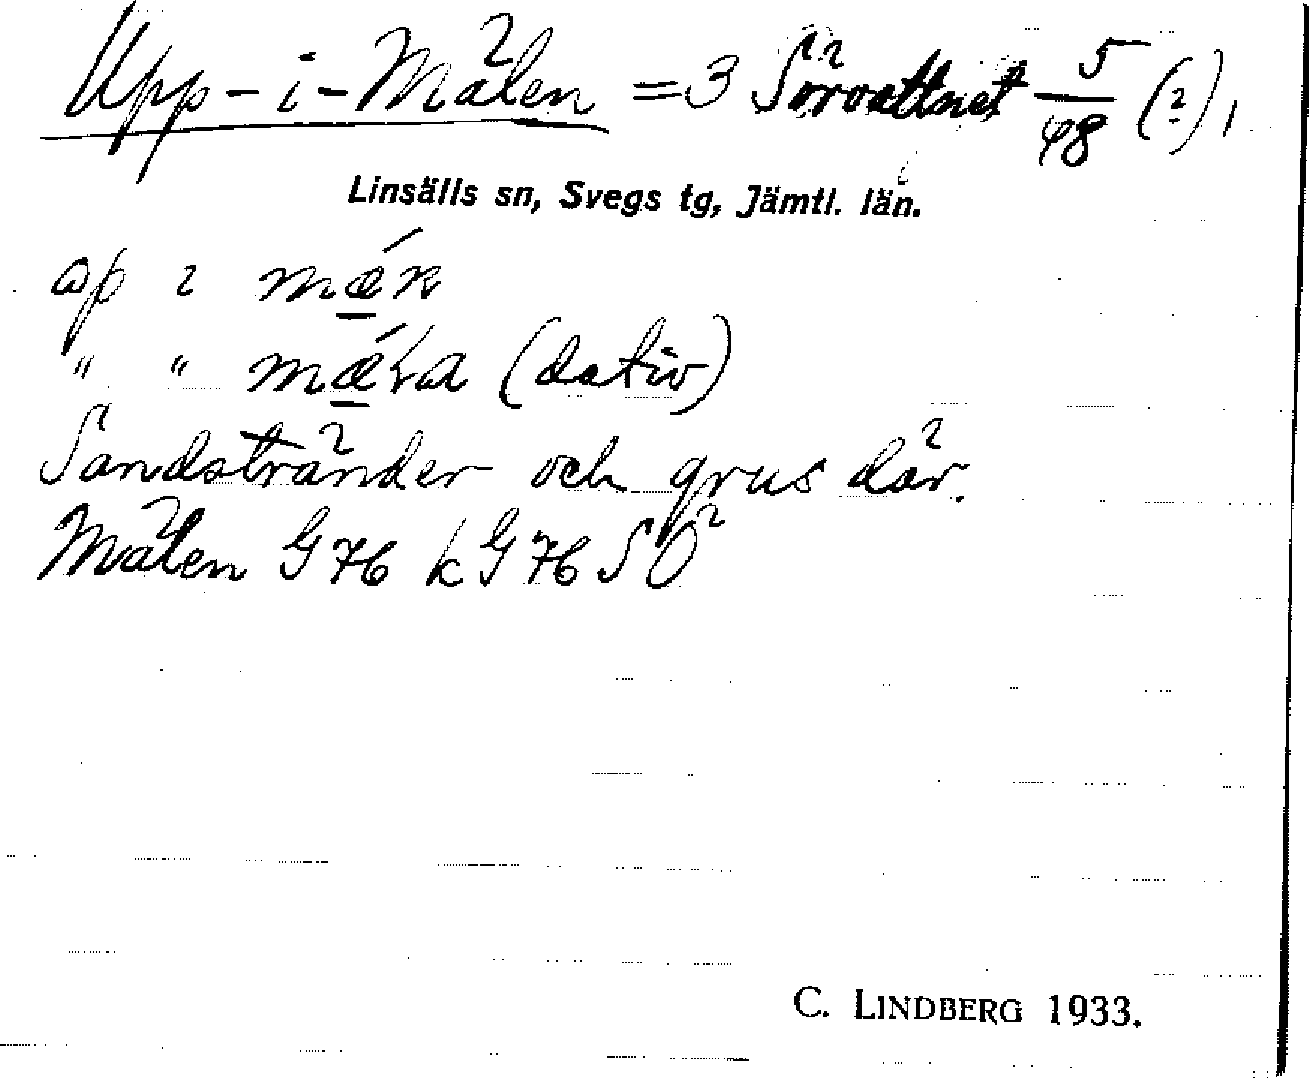 Upp-i-Mälen = 3 Sörvattnet 5/48 (2),
Linsälls sn, Svegs tg, Jämtl. län.
op i
" " (dativ)
Sandstränder och grus där.
Mälen G 76 k G 76 SÖ
C. LINDBERG 1933.